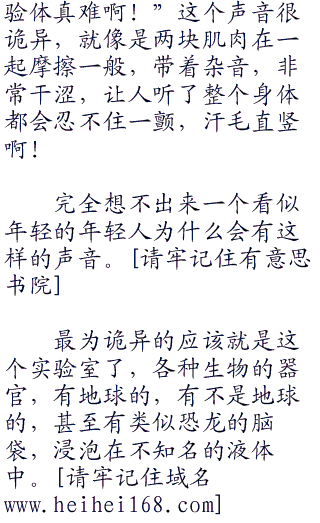 验体真难啊！”这个声音很
诡异，就像是两块肌肉在一
起摩擦一般，带着杂音，非
常干涩，让人听了整个身体
都会忍不住一颤，汗毛直竖
啊！
完全想不出来一个看似
年轻的年轻人为什么会有这
样的声音。[请牢记住有意思
书院]
最为诡异的应该就是这
个实验室了，各种生物的器
官，有地球的，有不是地球
的，甚至有类似恐龙的脑
袋，浸泡在不知名的液体
中。[请牢记住域名
www.heihei168.com]